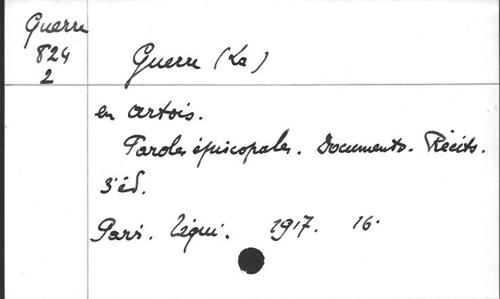 Guerre
824
2
Guerre (La)
en Artois.
Paroles épiscopales. Documents. Récits.
3e éd.
Paris. Téqui. 1917. 16.